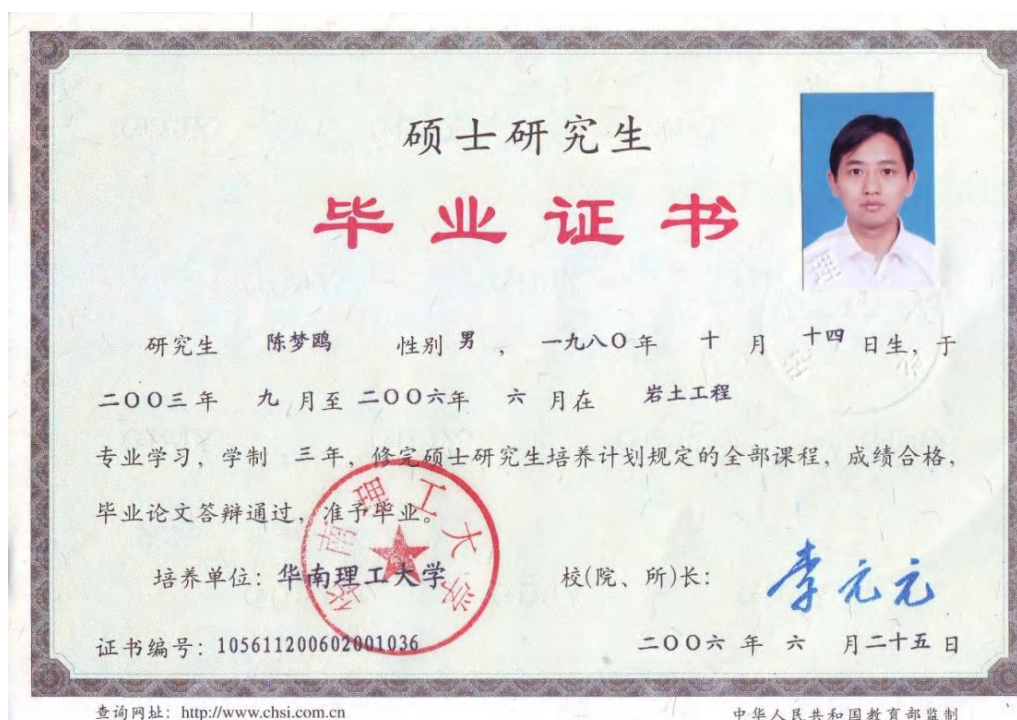 硕士研究生
毕业证书
研究生 陈梦鸥 性别 男 ， 一九八〇年 十 月 十四 日生，于
二〇〇三年 九 月至 二〇〇六年 六 月在 岩土工程
专业学习，学制 三年，修完硕士研究生培养计划规定的全部课程，成绩合格，
毕业论文答辩通过，准予毕业。
培养单位：华南理工大学 校(院、所)长： 李元元
华南理工大学
证书编号：105611200602001036 二〇〇六 年 六 月二十五 日
查询网址：http://www.chsi.com.cn 中华人民共和国教育部监制